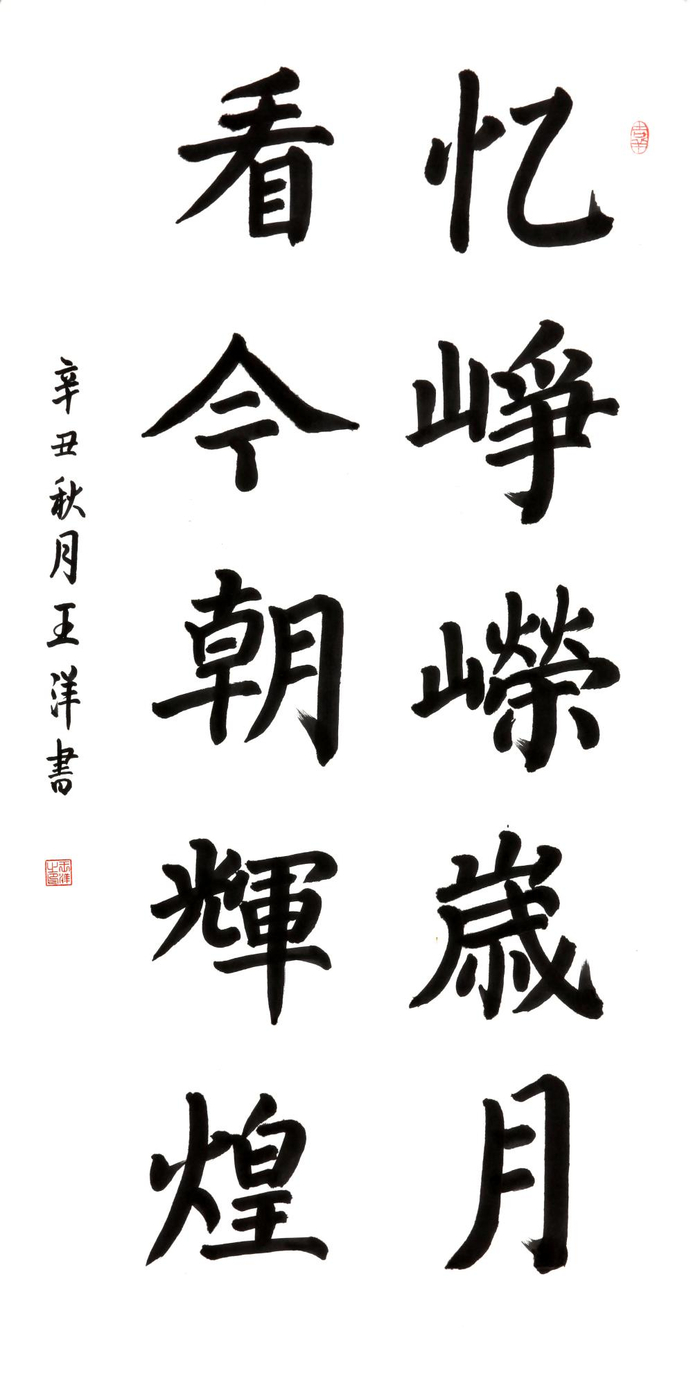 忆峥嵘歳月
看今朝輝煌
辛丑秋月王洋書